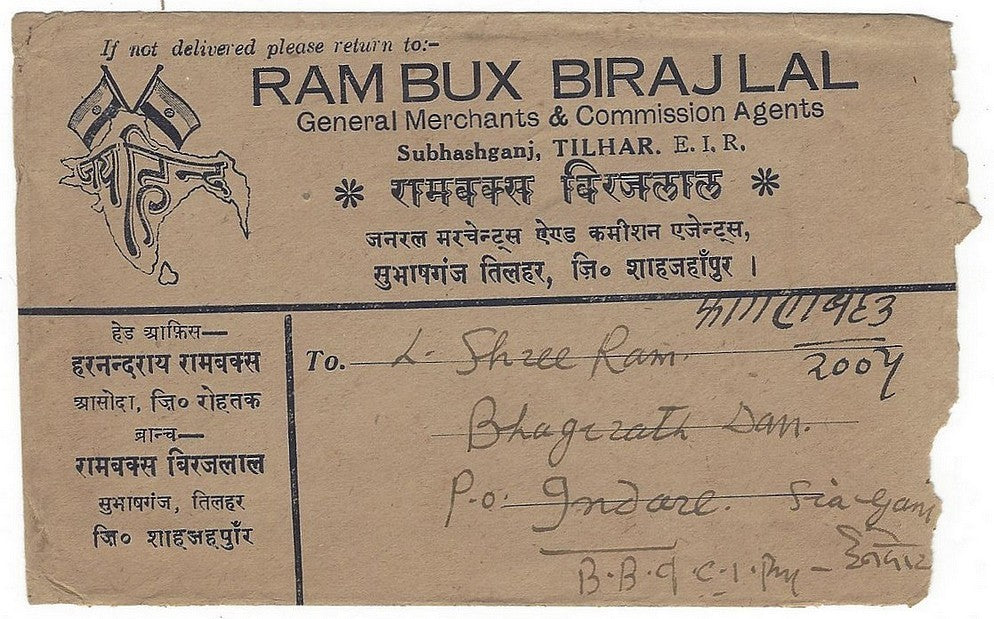 If not delivered please return to:-
RAM BUX BIRAJ LAL
General Merchants & Commission Agents
Subhashganj, TILHAR. E. I. R.
जय हिन्द
* रामबक्स बिरजलाल *
जनरल मरचेन्ट्स ऐण्ड कमीशन एजेन्ट्स,
सुभाषगंज तिलहर, जि० शाहजहाँपुर ।
हेड आफ़िस—
हरनन्दराय रामबक्स
आसोदा, जि० रोहतक
ब्रान्च—
रामबक्स बिरजलाल
सुभाषगंज, तिलहर
जि० शाहजहपुाँर
2004
To. L. Shree Ram.
Bhagirath Dan.
P.o. Indore. Sia Ganj
B.B. & C.I. Ry -